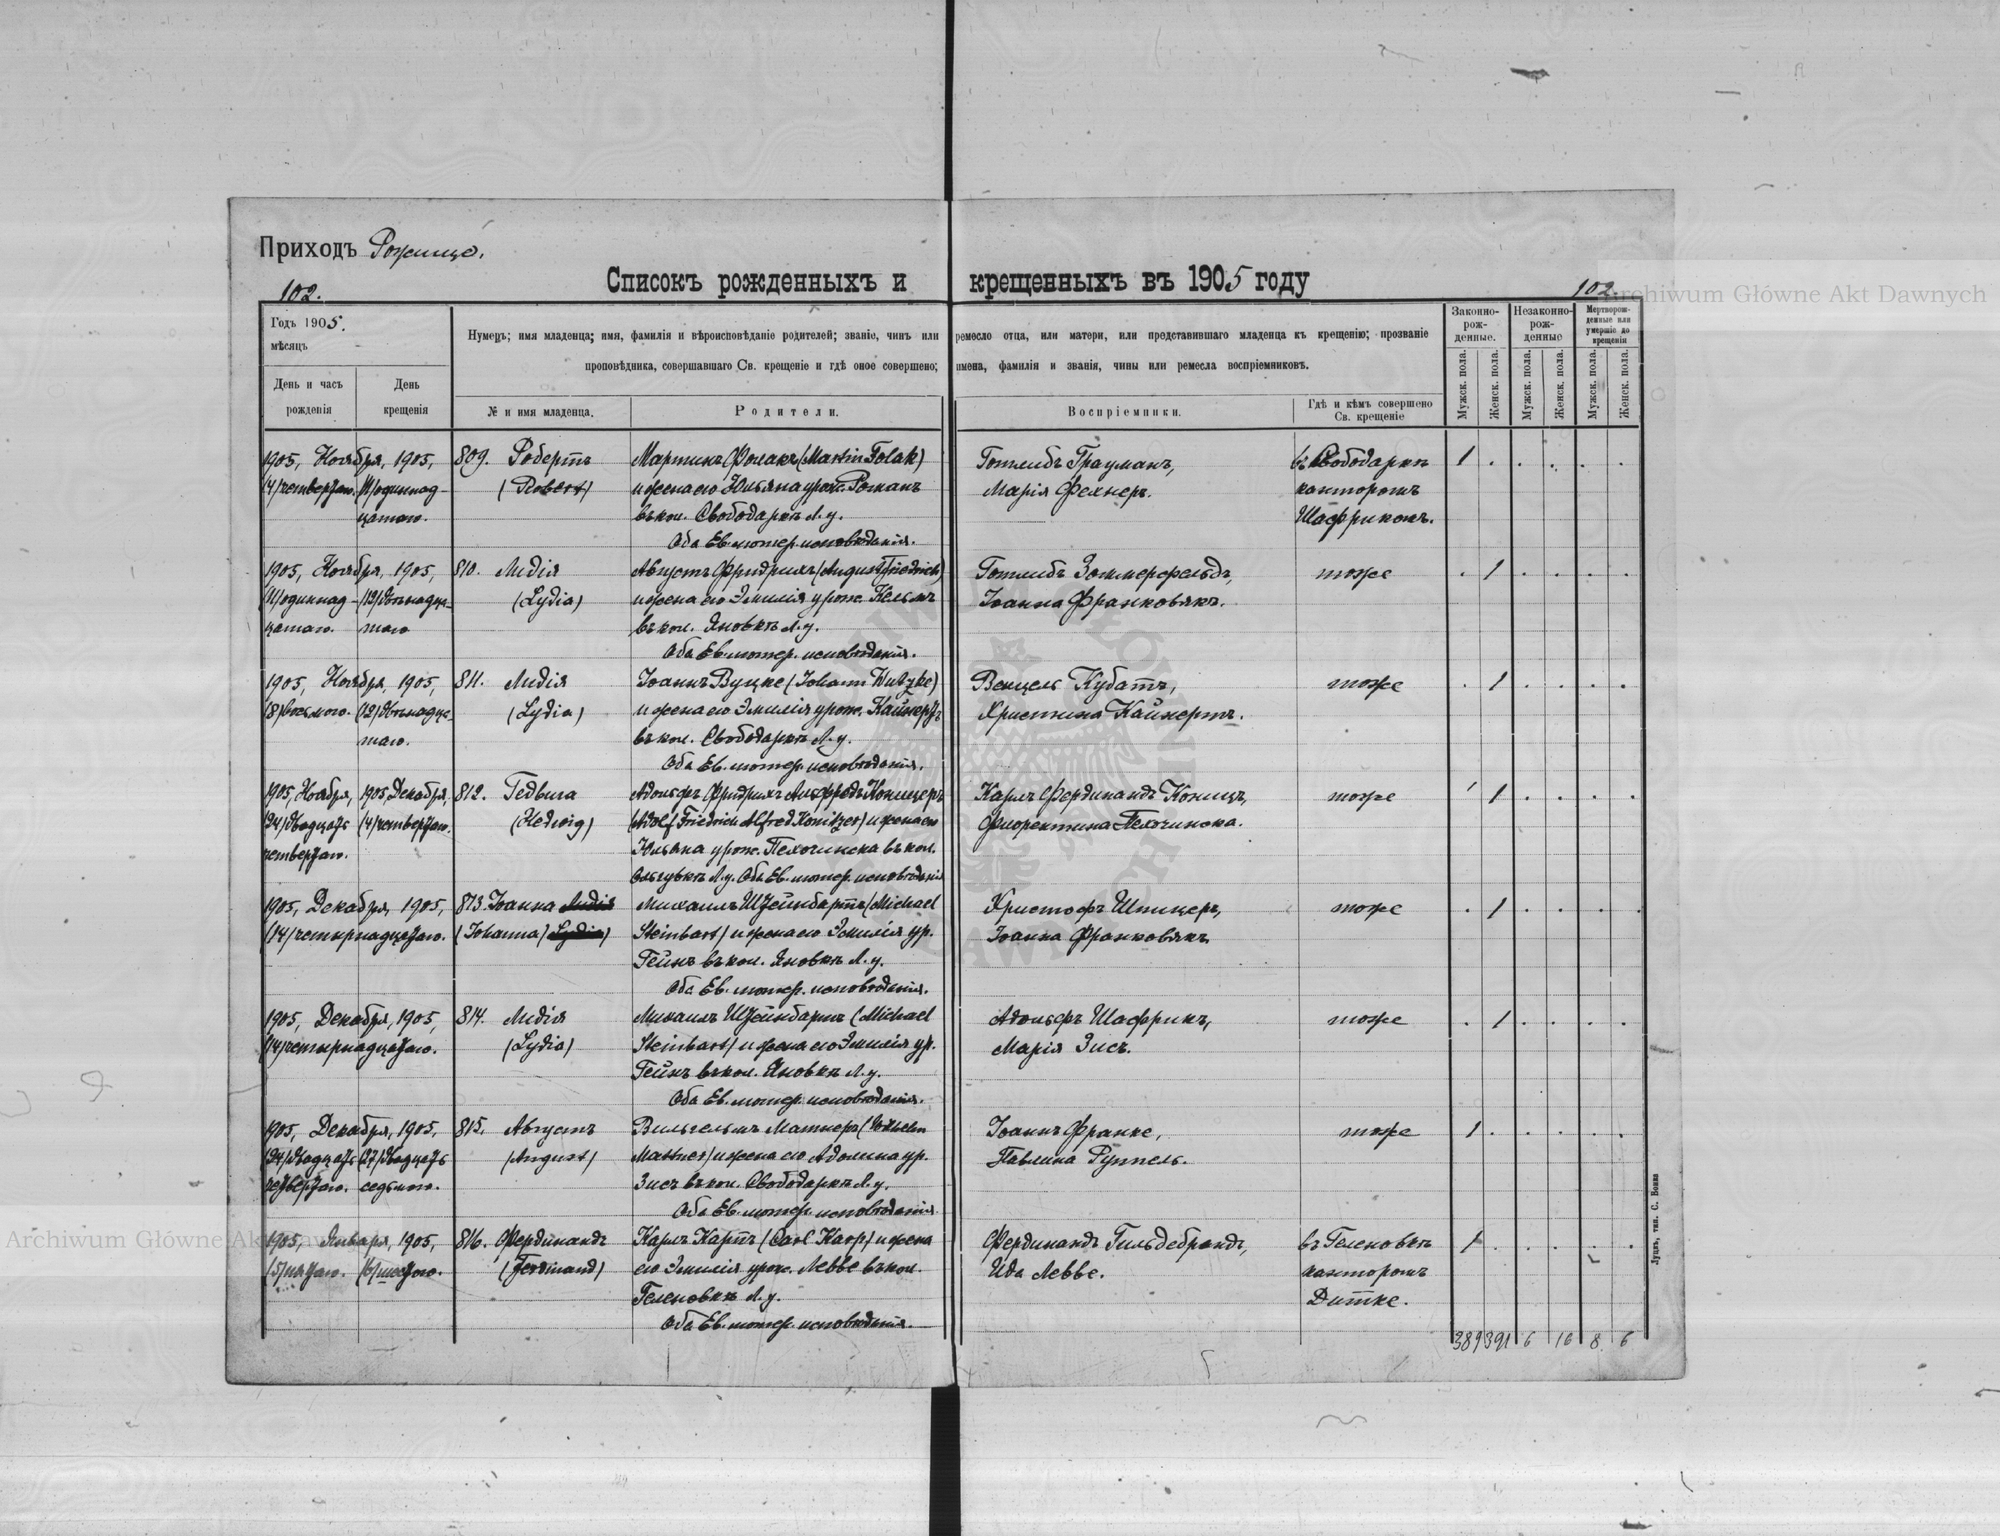 Приходъ Рожище.
102.
Списокъ рожденныхъ и крещенныхъ въ 1905 году
102.
Archiwum Główne Akt Dawnych
Годъ 1905.
мѣсяцъ
День и часъ рожденія
День крещенія
Нумеръ; имя младенца; имя, фамилія и вѣроисповѣданіе родителей; званіе, чинъ или ремесло отца, или матери, или представившаго младенца къ крещенію; прозваніе
проповѣдника, совершавшаго Св. крещеніе и гдѣ оное совершено; имена, фамилія и званія, чины или ремесла воспріемниковъ.
№ и имя младенца.
Родители.
Воспріемники.
Гдѣ и кѣмъ совершено Св. крещеніе
Законно-рож-денные.
Незаконно-рож-денные
Мертворож-денные или умершіе до крещенія
Мужск. пола.
Женск. пола.
Мужск. пола.
Женск. пола.
Мужск. пола.
Женск. пола.
1905, Ноября, 1905, 809. Робертъ Мартинъ Фолакъ (Martin Folak) Готлибъ Грауманъ, въ Свободаркѣ 1
(4) четвертаго. (11) одиннад- (Robert) и жена его Юльяна урож. Романъ Марія Фехнеръ. канторомъ
цатаго. въ кол. Свободаркѣ Л. у. Шафрикомъ.
Оба Ев. лютер. исповѣданія.
1905, Ноября, 1905, 810. Лидія Августъ Фридрихъ (August Friedrich) Готлибъ Зоммерфельдъ, тоже 1
(11) одиннад- (12) двѣнадца- (Lydia) и жена его Эмилія урож. Кельмъ Іоанна Франковякъ.
цатаго. таго въ кол. Яновкѣ Л. у.
Оба Ев. лютер. исповѣданія.
1905, Ноября, 1905, 811. Лидія Іоаннъ Вуцке (Johann Wutzke) Венцель Кубатъ, тоже 1
(8) восьмого. (12) двѣнадца- (Lydia) и жена его Эмилія урож. Кайнертъ Христина Кайнертъ.
таго. въ кол. Свободаркѣ Л. у.
Оба Ев. лютер. исповѣданія.
1905, Ноября, 1905 Декабря, 812. Гедвига Адольфъ Фридрихъ Альфредъ Коницеръ Карлъ Фердинандъ Коницъ, тоже 1
(24) двадцать (4) четвертаго. (Hedwig) (Adolf Friedrich Alfred Konitzer) и жена его Флорентина Пехочинска.
четвертаго. Юльяна урож. Пехочинска въ кол.
Ольгувкѣ Л. у. Оба Ев. лютер. исповѣданія
1905, Декабря, 1905, 813. Іоанна Лидія Михаилъ Штейнбартъ (Michael Христофъ Шпицеръ, тоже 1
(14) четырнадцатаго. (Johanna) Lydia) Steinbart) и жена его Эмилія ур. Іоанна Франковякъ
Гейнъ въ кол. Яновкѣ Л. у.
Оба Ев. лютер. исповѣданія.
1905, Декабря, 1905, 814. Лидія Михаилъ Штейнбартъ (Michael Адольфъ Шафрикъ, тоже 1
(14) четырнадцатаго. (Lydia) Steinbart) и жена его Эмилія ур. Марія Зисъ.
Гейнъ въ кол. Яновкѣ Л. у.
Оба Ев. лютер. исповѣданія.
1905, Декабря, 1905, 815. Августъ Вильгельмъ Матнеръ (Wilhelm Іоаннъ Франке, тоже 1
(24) двадцать (27) двадцать (August) Mattner) и жена его Адолина ур. Павлина Руппель.
четвертаго. седьмого. Зисъ въ кол. Свободаркѣ Л. у.
Оба Ев. лютер. исповѣданія.
1905, Января, 1905, 816. Фердинандъ Карлъ Карпъ (Carl Karp) и жена Фердинандъ Гильдебрандъ, въ Геленовкѣ 1
(5) пятаго. (6) шестого. (Ferdinand) его Эмилія урож. Левве въ кол. Ида Левве. канторомъ
Геленовкѣ Л. у. Дитке.
Оба Ев. лютер. исповѣданія.
389 391 6 16 8 6
Луцкъ, тип. С. Бокка
Archiwum Główne Akt Dawnych